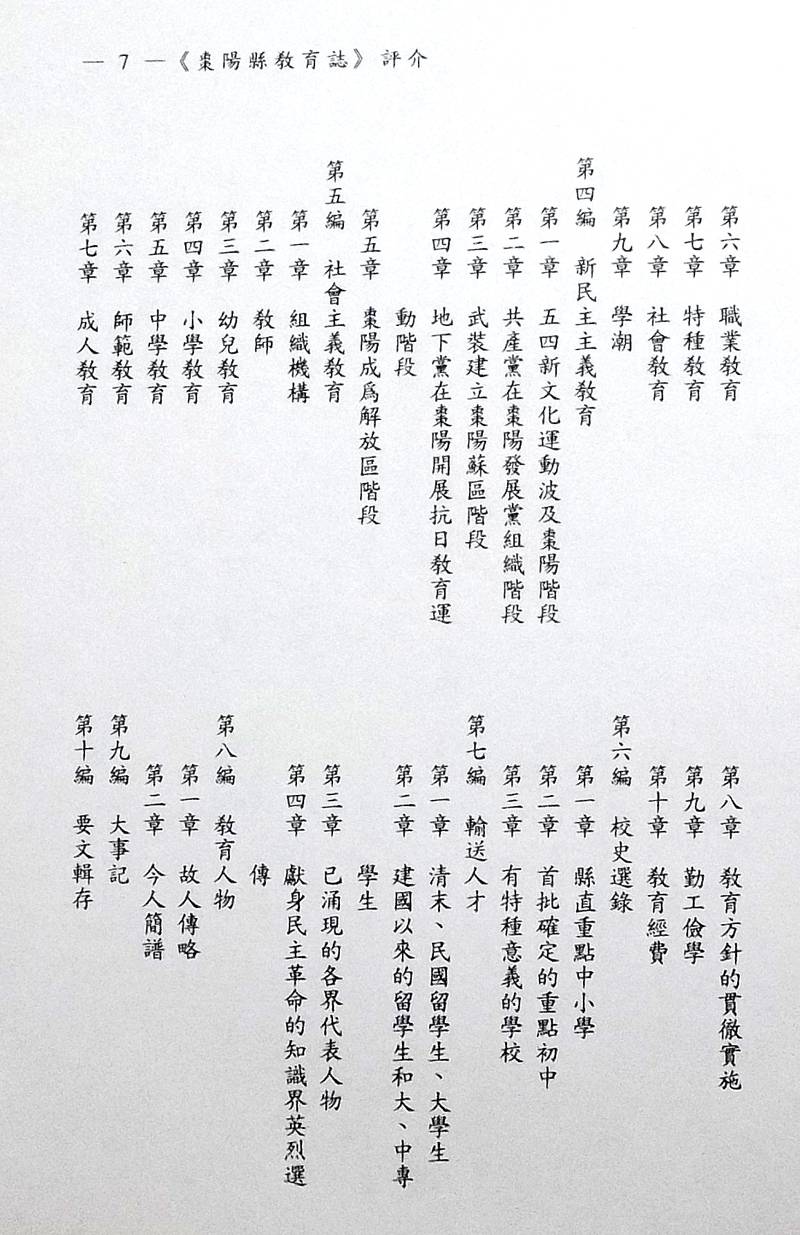 — 7 —《棗陽縣教育誌》評介
第六章　職業教育
第七章　特種教育
第八章　社會教育
第九章　學潮
第四編　新民主主義教育
第一章　五四新文化運動波及棗陽階段
第二章　共產黨在棗陽發展黨組織階段
第三章　武裝建立棗陽蘇區階段
第四章　地下黨在棗陽開展抗日教育運
動階段
第五章　棗陽成爲解放區階段
第五編　社會主義教育
第一章　組織機構
第二章　教師
第三章　幼兒教育
第四章　小學教育
第五章　中學教育
第六章　師範教育
第七章　成人教育
第八章　教育方針的貫徹實施
第九章　勤工儉學
第十章　教育經費
第六編　校史選錄
第一章　縣直重點中小學
第二章　首批確定的重點初中
第三章　有特種意義的學校
第七編　輸送人才
第一章　清末、民國留學生、大學生
第二章　建國以來的留學生和大、中專
學生
第三章　已涌現的各界代表人物
第四章　獻身民主革命的知識界英烈選
傳
第八編　教育人物
第一章　故人傳略
第二章　今人簡譜
第九編　大事記
第十編　要文輯存